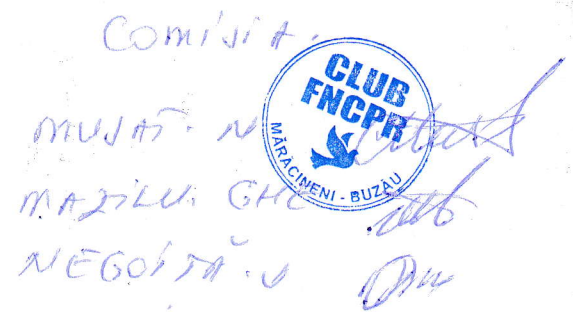 Comisia.
CLUB
FNCPR
MĂRĂCINENI - BUZĂU
MUJAT. N
MAZILU. GHE
NEGOIȚĂ. V